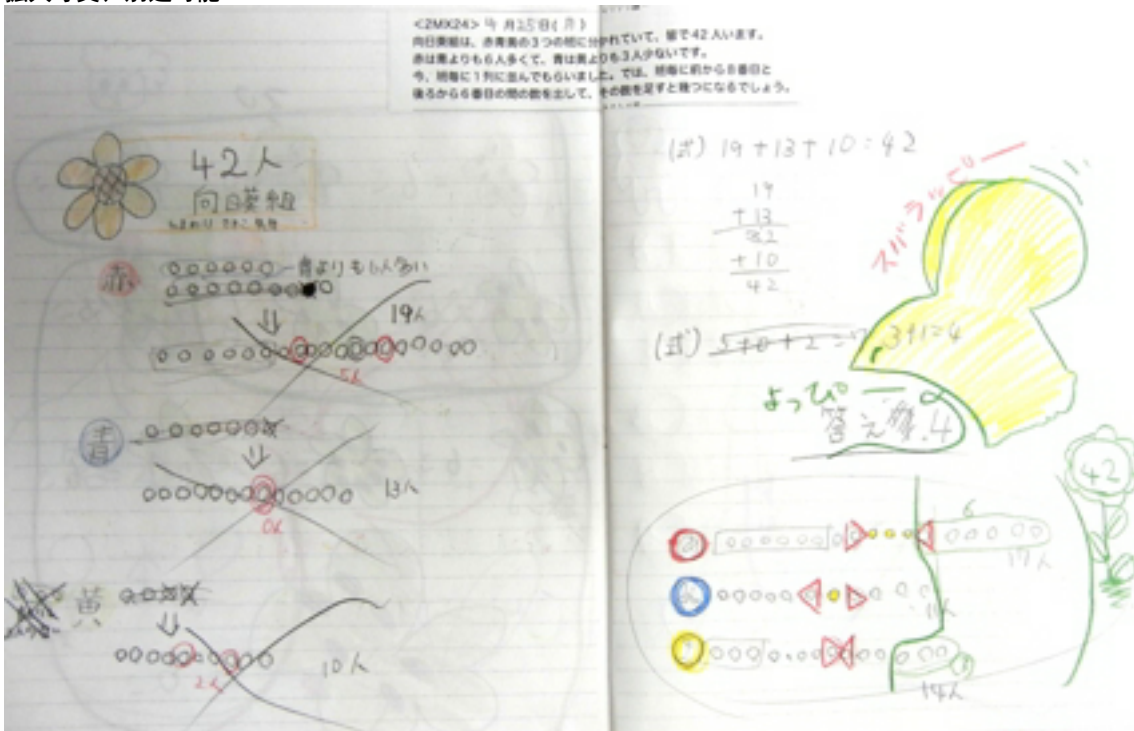 <2MX24> 4月25日(月)
向日葵組は、赤青黄の3つの班に分かれていて、皆で42人います。
赤は青よりも6人多くて、青は黄よりも3人少ないです。
今、班毎に1列に並んでもらいました。では、班毎に前から8番目と
後ろから6番目の間の数を出して、その数を足すと幾つになるでしょう。
42人
向日葵組
赤
青よりも6人多い
19人
5人
青
13人
0人
黄
10人
2人
(式) 19+13+10=42
19
+13
32
+10
42
(式) 5+0+2=7 3+1=4
スバラッピー
よっぴー
答え 4
42
6
17人
11人
14人